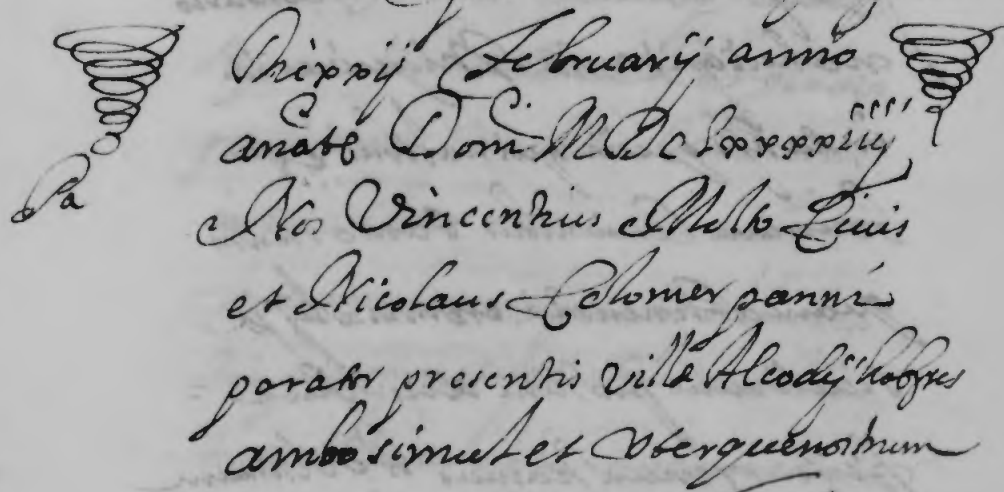 Die xxij Februarij anno
a nate Domĩ M Dc Lxxxxiiij
Pa
Nos Vincentius Molto Civis
et Nicolaus Colomer panni
parator presentis ville Alcodij habĩres
ambo simul et Uterque nostrum